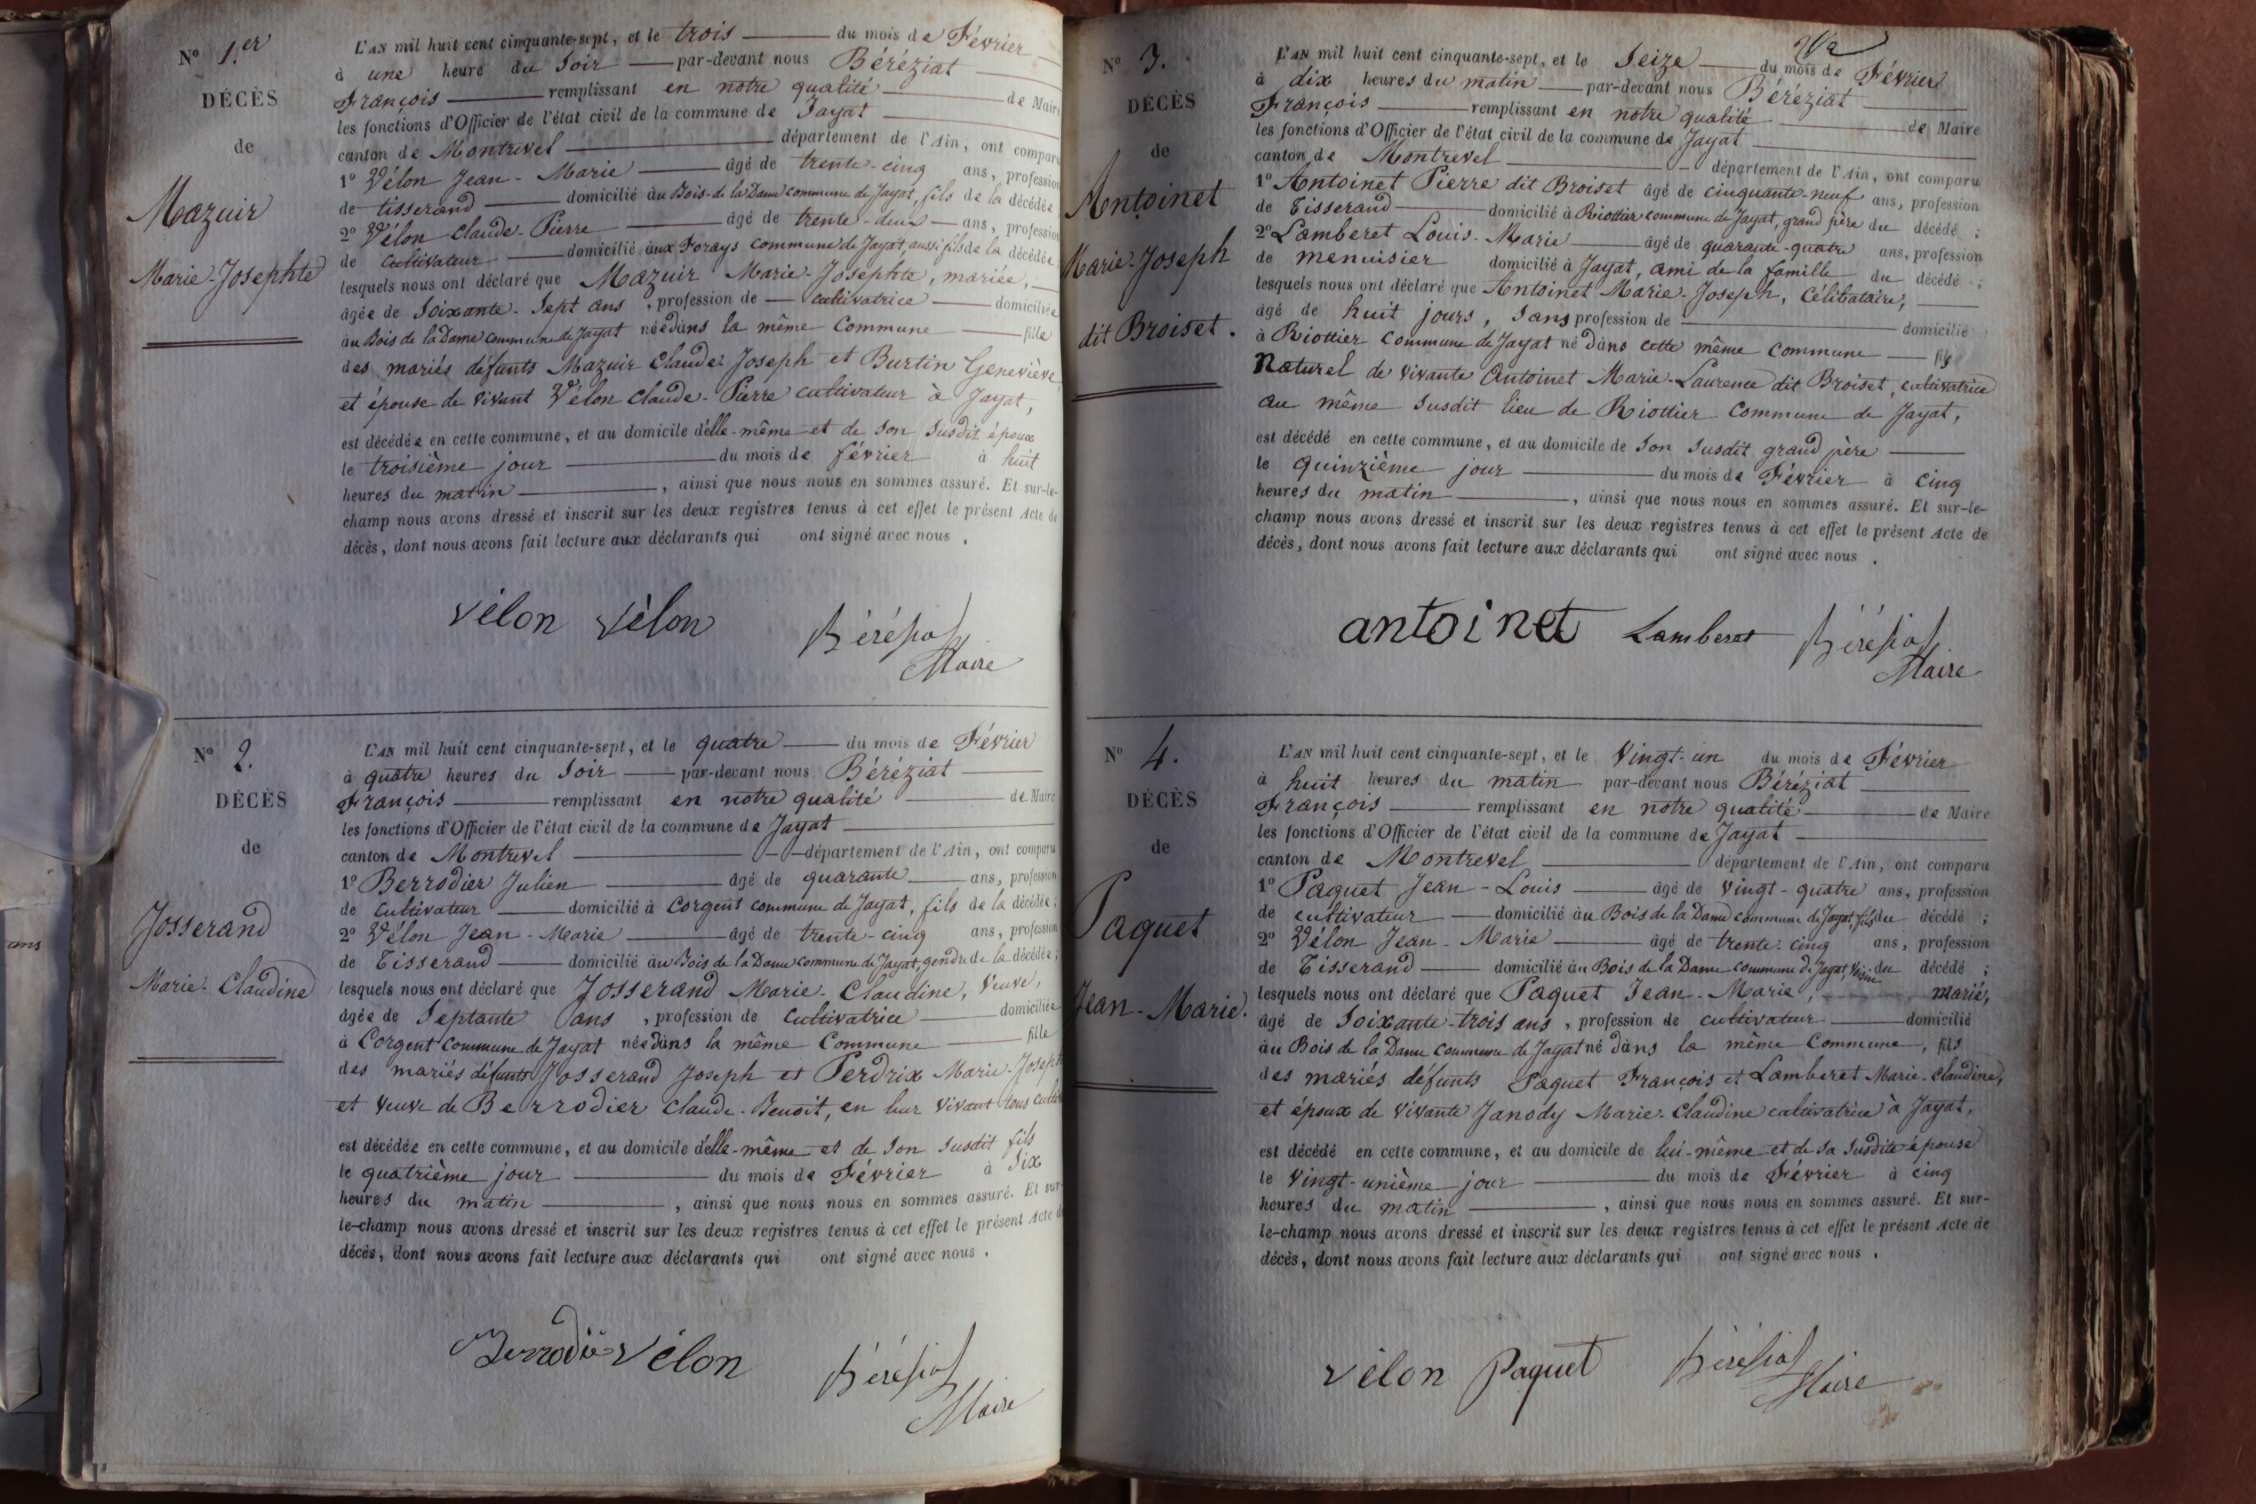 N° 1.er
DÉCÈS
de
Mazuir
Marie-Josephte
L'AN mil huit cent cinquante-sept, et le trois du mois de Février
à une heure du soir par-devant nous Béréziat
François remplissant en notre qualité de Maire
les fonctions d'Officier de l'état civil de la commune de Jayat
canton de Montrevel département de l'Ain, ont comparu
1° Vélon Jean-Marie âgé de trente-cinq ans, profession
de tisserand domicilié au Bois de la Dame commune de Jayat, fils de la décédée
2° Vélon Claude-Pierre âgé de trente-deux ans, profession
de cultivateur domicilié aux Forays commune de Jayat, aussi fils de la décédée
lesquels nous ont déclaré que Mazuir Marie-Josephte, mariée,
âgée de soixante-sept ans, profession de cultivatrice domiciliée
au Bois de la Dame commune de Jayat née dans la même commune fille
des mariés défunts Mazuir Claude-Joseph et Burtin Geneviève,
et épouse de vivant Vélon Claude-Pierre cultivateur à Jayat,
est décédée en cette commune, et au domicile d'elle-même et de son susdit époux
le troisième jour du mois de février à huit
heures du matin, ainsi que nous nous en sommes assuré. Et sur-le-
champ nous avons dressé et inscrit sur les deux registres tenus à cet effet le présent Acte de
décès, dont nous avons fait lecture aux déclarants qui ont signé avec nous.
vélon vélon Béréziat
Maire
N° 2.
DÉCÈS
de
Josserand
Marie-Claudine
L'AN mil huit cent cinquante-sept, et le quatre du mois de Février
à quatre heures du soir par-devant nous Béréziat
François remplissant en notre qualité de Maire
les fonctions d'Officier de l'état civil de la commune de Jayat
canton de Montrevel département de l'Ain, ont comparu
1° Berrodier Julien âgé de quarante ans, profession
de cultivateur domicilié à Corgent commune de Jayat, fils de la décédée;
2° Vélon Jean-Marie âgé de trente-cinq ans, profession
de Tisserand domicilié au Bois de la Dame commune de Jayat, gendre de la décédée;
lesquels nous ont déclaré que Josserand Marie-Claudine, veuve,
âgée de septante ans, profession de cultivatrice domiciliée
à Corgent commune de Jayat née dans la même commune fille
des mariés défunts Josserand Joseph et Perdrix Marie-Joseph
et veuve de Berrodier Claude-Benoit, en leur vivant tous
est décédée en cette commune, et au domicile d'elle-même et de son susdit fils
le quatrième jour du mois de Février à six
heures du matin, ainsi que nous nous en sommes assuré. Et sur-
le-champ nous avons dressé et inscrit sur les deux registres tenus à cet effet le présent Acte de
décès, dont nous avons fait lecture aux déclarants qui ont signé avec nous.
Berrodié vélon Béréziat
Maire
N° 3.
DÉCÈS
de
Antoinet
Marie-Joseph
dit Broiset.
L'AN mil huit cent cinquante-sept, et le seize du mois de Février
à dix heures du matin par-devant nous Béréziat
François remplissant en notre qualité de Maire
les fonctions d'Officier de l'état civil de la commune de Jayat
canton de Montrevel département de l'Ain, ont comparu
1° Antoinet Pierre dit Broiset âgé de cinquante-neuf ans, profession
de Tisserand domicilié à Riottier commune de Jayat, grand père du décédé;
2° Lamberet Louis-Marie âgé de quarante-quatre ans, profession
de menuisier domicilié à Jayat, ami de la famille du décédé;
lesquels nous ont déclaré que Antoinet Marie-Joseph, célibataire,
âgé de huit jours, sans profession de domicilié
à Riottier commune de Jayat né dans cette même commune fils
Naturel de vivante Antoinet Marie-Laurence dit Broiset, cultivatrice
au même susdit lieu de Riottier commune de Jayat,
est décédé en cette commune, et au domicile de son susdit grand père
le quinzième jour du mois de Février à cinq
heures du matin, ainsi que nous nous en sommes assuré. Et sur-le-
champ nous avons dressé et inscrit sur les deux registres tenus à cet effet le présent Acte de
décès, dont nous avons fait lecture aux déclarants qui ont signé avec nous.
antoinet Lamberet Béréziat
Maire
N° 4.
DÉCÈS
de
Paquet
Jean-Marie.
L'AN mil huit cent cinquante-sept, et le vingt-un du mois de Février
à huit heures du matin par-devant nous Béréziat
François remplissant en notre qualité de Maire
les fonctions d'Officier de l'état civil de la commune de Jayat
canton de Montrevel département de l'Ain, ont comparu
1° Paquet Jean-Louis âgé de vingt-quatre ans, profession
de cultivateur domicilié au Bois de la Dame commune de Jayat, fils du décédé;
2° Vélon Jean-Marie âgé de trente-cinq ans, profession
de Tisserand domicilié au Bois de la Dame commune de Jayat, voisin du décédé;
lesquels nous ont déclaré que Paquet Jean-Marie, marié,
âgé de soixante-trois ans, profession de cultivateur domicilié
au Bois de la Dame commune de Jayat né dans la même commune, fils
des mariés défunts Paquet François et Lamberet Marie-Claudine,
et époux de vivante Janody Marie-Claudine cultivatrice à Jayat,
est décédé en cette commune, et au domicile de lui-même et de sa susdite épouse
le vingt-unième jour du mois de Février à cinq
heures du matin, ainsi que nous nous en sommes assuré. Et sur-
le-champ nous avons dressé et inscrit sur les deux registres tenus à cet effet le présent Acte de
décès, dont nous avons fait lecture aux déclarants qui ont signé avec nous.
vélon Paquet Béréziat
Maire
ans